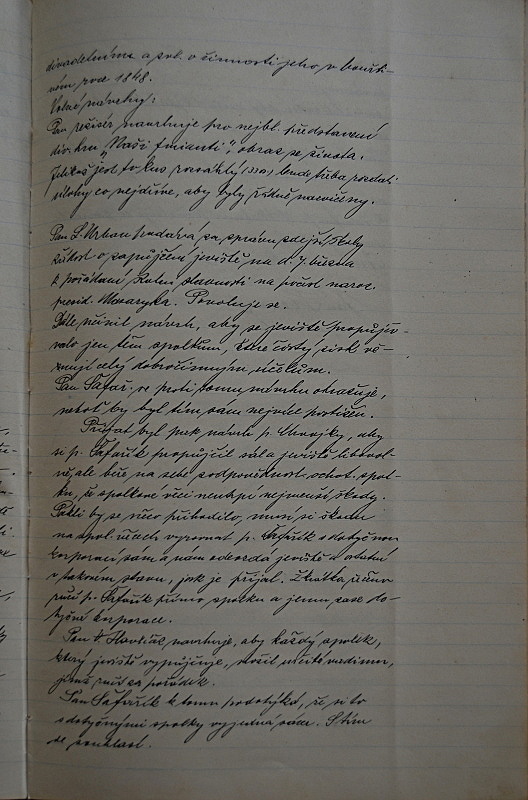 divadelnímu a pod. o činnosti jeho v bouřli-
vém roce 1848.
Volné návrhy:
Pan režisér navrhuje pro nejbl. představení
div. hru "Naši furianti", obraz ze života.
Jelikož jest to kus rozsáhlý bude třeba rozdati
úlohy co nejdříve, aby byly řádně nacvičeny.
Pan L. Urban podává za správu zdejší školy
žádost o zapůjčení jeviště na d. 7. března
k pořádání školní slavnosti na počest naroz.
presid. Masaryka. Povoluje se.
Dále učinil návrh, aby se jeviště propůjčo-
valo jen těm spolkům, které čistý zisk vě-
nují cely dobročinným účelům.
Pan Šafař. se proti tomu návrhu ohrazuje,
neboť by byl tím sám nejvíce postižen.
Přijat byl pak návrh p. aby
si p. Šafařík propůjčil sál a jeviště libovol-
ně, ale béře na sebe zodpovědnost ochot. spol-
ku, že spolkové věci neutrpí nejmenší škody.
Pakli by se něco přihodilo, musí si škodu
na spol. věcech vyrovnat p. Šafařík s dotyčnou
korporací sám a nám odevzdá jeviště a ostatní
v takovém stavu, jak je přijal. Zkrátka
ručí p. Šafařík přímo spolku a jemu zase do-
tyčná korporace.
Pan Havlíček navrhuje, aby každý spolek,
který jeviště vypůjčuje, složil určité vadium,
jímž ručí za pořádek.
Pan Šafařík k tomu podotýká, že si to
s dotyčnými spolky vyjedná sám. S tím
se souhlasí.